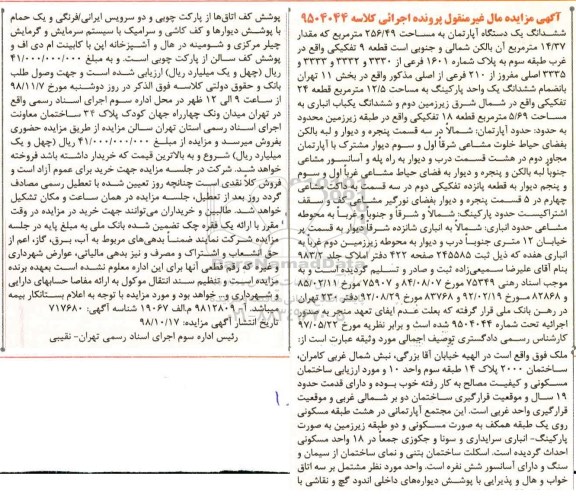 آگهی مزایده مال غیرمنقول پرونده اجرائی کلاسه ۹۵۰۴۰۴۴
ششدانگ یک دستگاه آپارتمان به مساحت ۲۵۶/۴۹ مترمربع که مقدار
۱۴/۳۷ مترمربع آن بالکن شمالی و جنوبی است قطعه ۹ تفکیکی واقع در
غرب طبقه سوم به پلاک شماره ۱۶۰۱ فرعی از ۳۳۳۰ و ۳۳۳۲ و ۳۳۳۳ و
۳۳۳۵ اصلی مفروز از ۲۱۰ فرعی از اصلی مذکور واقع در بخش ۱۱ تهران
بانضمام ششدانگ یک واحد پارکینگ به مساحت ۱۲/۵ مترمربع قطعه ۲۴
تفکیکی واقع در شمال شرق زیرزمین دوم و ششدانگ یکباب انباری به
مساحت ۵/۶۹ مترمربع قطعه ۱۸ تفکیکی واقع در طبقه زیرزمین محدود
به حدود: حدود آپارتمان: شمالاً در سه قسمت پنجره و دیوار و لبه بالکن
بفضای حیاط خلوت مشاعی شرقاً اول و سوم دیوار مشترک با آپارتمان
مجاور دوم در هشت قسمت درب و دیوار به راه پله و آسانسور مشاعی
جنوباً لبه بالکن و پنجره و دیوار به فضای حیاط مشاعی غرباً اول و سوم
و پنجم دیوار به قطعه پانزده تفکیکی دوم در سه قسمت به داکت مشاعی
چهارم در ۵ قسمت پنجره و دیوار بفضای نورگیر مشاعی کف و سقف
اشتراکیست حدود پارکینگ: شمالاً و شرقاً و جنوباً و غرباً به محوطه
مشاعی حدود انباری: شمالاً به انباری شانزده شرقاً دیوار به قسمت پر
خیابان ۱۲ متری جنوباً درب و دیوار به محوطه زیرزمین دوم غرباً به
انباری هفده که ذیل ثبت ۲۴۵۵۸۵ صفحه ۴۲۲ دفتر املاک جلد ۹۸۳/۲
بنام آقای علیرضا سمیعی‌زاده ثبت و صادر و تسلیم گردیده است و به
موجب اسناد رهنی ۷۵۳۴۹ مورخ ۸۴/۰۸/۰۷ و ۷۵۹۰۷ مورخ ۸۵/۰۲/۱۱
و ۸۲۸۶۸ مورخ ۹۲/۰۲/۱۹ و ۸۳۷۶۸ مورخ ۹۲/۰۸/۲۹ دفتر ۲۳۰ تهران
در رهن بانک ملی قرار گرفته که بعلت عدم ایفای تعهد منجر به صدور
اجرائیه تحت شماره ۹۵۰۴۰۴۴ شده است و برابر نظریه مورخ ۹۷/۰۵/۲۲
کارشناس رسمی دادگستری توصیف اجمالی مورد وثیقه عبارت است از:
ملک فوق واقع است در الهیه خیابان آقا بزرگی، نبش شمال غربی کامران،
ساختمان ۲۰۰۰ پلاک ۱۴ طبقه سوم واحد ۱۰ و مورد ارزیابی ساختمان
مسکونی و کیفیت مصالح به کار رفته خوب بوده و دارای قدمت حدود
۱۹ سال و موقعیت قرارگیری ساختمان دو بر شمالی غربی و موقعیت
قرارگیری واحد غربی است. این مجتمع آپارتمانی در هشت طبقه مسکونی
روی یک طبقه همکف به صورت مسکونی و دو طبقه زیرزمین به صورت
پارکینگ- انباری سرایداری و سونا و جکوزی جمعاً در ۱۸ واحد مسکونی
احداث گردیده است. اسکلت ساختمان بتنی و نمای ساختمان از سیمان و
سنگ و دارای آسانسور شش نفره است. واحد مورد نظر مشتمل بر سه اتاق
خواب و هال و پذیرایی با پوشش دیواره‌های داخلی اندود گچ و نقاشی با
پوشش کف اتاق‌ها از پارکت چوبی و دو سرویس ایرانی/فرنگی و یک حمام
با پوشش دیوارها و کف کاشی و سرامیک با سیستم سرمایش و گرمایش
چیلر مرکزی و شومینه در هال و آشپزخانه اپن با کابینت ام دی اف و
پوشش کف سالن از پارکت چوبی است. و به مبلغ ۴۱/۰۰۰/۰۰۰/۰۰۰
ریال (چهل و یک میلیارد ریال) ارزیابی شده است و جهت وصول طلب
بانک و حقوق دولتی کلاسه فوق الذکر در روز دوشنبه مورخ ۹۸/۱۱/۷
از ساعت ۹ الی ۱۲ ظهر در محل اداره سوم اجرای اسناد رسمی واقع
در تهران میدان ونک چهارراه جهان کودک پلاک ۳۴ ساختمان معاونت
اجرای اسناد رسمی استان تهران سالن مزایده از طریق مزایده حضوری
بفروش میرسد و مزایده از مبلغ ۴۱/۰۰۰/۰۰۰/۰۰۰ ریال (چهل و یک
میلیارد ریال) شروع و به بالاترین قیمت که خریدار داشته باشد فروخته
خواهد شد. شرکت در جلسه مزایده جهت خرید برای عموم آزاد است و
فروش کلاً نقدی است چنانچه روز تعیین شده با تعطیل رسمی مصادف
گردد روز بعد از تعطیل، جلسه مزایده در همان ساعت و مکان تشکیل
خواهد شد. طالبین و خریداران می‌توانند جهت خرید در مزایده در وقت
مقرر با ارائه یک فقره چک تضمین شده بانک ملی به مبلغ پایه در جلسه
مزایده شرکت نمایند ضمناً بدهی‌های مربوط به آب، برق، گاز، اعم از
حق انشعاب و اشتراک و مصرف و نیز بدهی مالیاتی، عوارض شهرداری
و غیره که رقم قطعی آنها برای این اداره معلوم نشده است بعهده برنده
مزایده است و تنظیم سند انتقال موکول به ارائه مفاصا حسابهای دارایی
و شهرداری و.. خواهد بود و مورد مزایده با توجه به اعلام بستانکار بیمه
میباشد. آ-۹۸۱۲۸۰۹ م‌الف ۱۹۰۶۷ شناسه آگهی: ۷۱۷۶۸۰
تاریخ انتشار آگهی مزایده: ۹۸/۱۰/۱۷
رئیس اداره سوم اجرای اسناد رسمی تهران- نقیبی